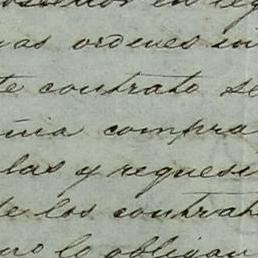 as ordenes
te contrato se
nia compra
las y requesi
de los contrat
no lo obligan